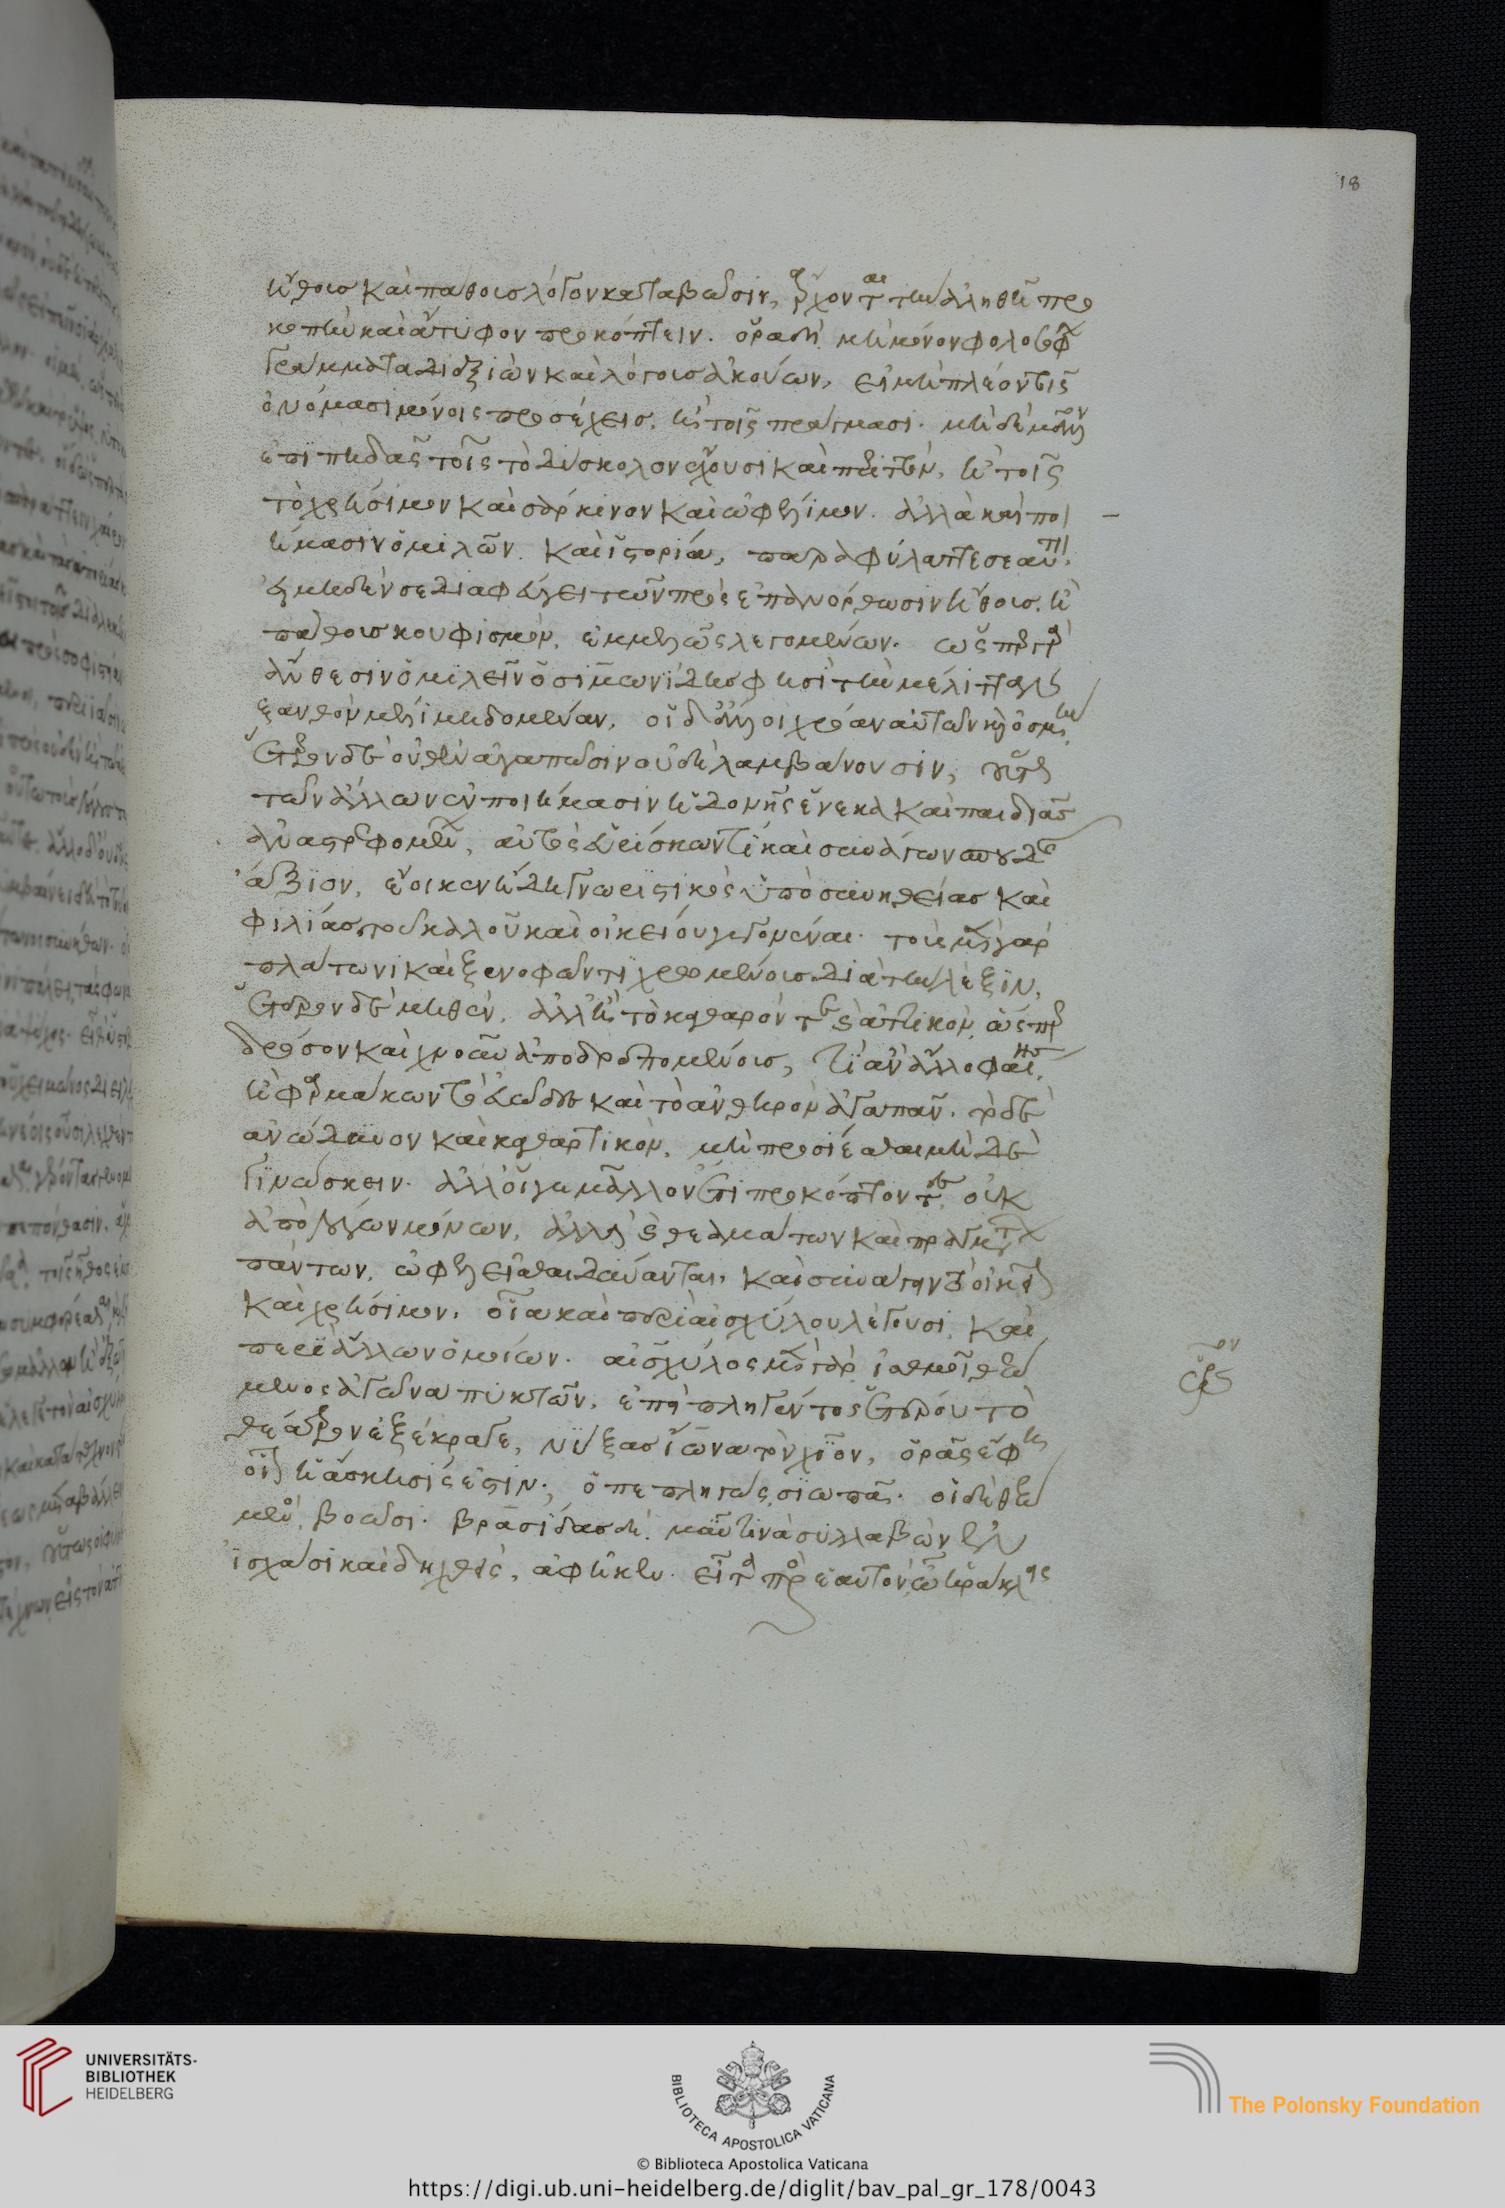 ἤθους καὶ πάθους λόγον καταβῶσιν, ἄρχονται τὴν ἀληθῆ προ
κοπὴν καὶ ἄτυφον προκόπτειν. ὅρα δὴ μὴ μόνον φιλοσόφων
γράμματα διεξιὼν καὶ λόγους ἀκούων, εἰ μὴ πλέον τοῖς
ὀνόμασι μόνοις προσέχεις, ἢ τοῖς πράγμασι. μὴ δὲ μᾶλλον
ἐπιπηδᾶς τοῖς τὸ δύσκολον ἔχουσι καὶ περιττὸν, ἢ τοῖς
τὸ χρήσιμον καὶ σάρκινον καὶ ὠφέλιμον. ἀλλὰ καὶ ποι
ήμασιν ὁμιλῶν καὶ ἱστορίᾳ, παραφύλαττε σεαυτ,
εἰ μηδέν σε διαφεύγει τῶν πρὸς ἐπανόρθωσιν ἤθους, ἢ
πάθους κουφισμὸν, ἐμμελῶς λεγομένων. ὥσπερ γὰρ
ἄνθεσιν ὁμιλεῖν ὁ σιμωνίδης φησὶ τὴν μέλιτταν
ξανθὸν μέλι μηδομέναν, οἱ δ' ἄλλοι χρόαν αὐτῶν καὶ ὀσμὴν,
ἕτερον δὲ οὐθὲν ἀγαπῶσιν οὐδὲ λαμβάνουσιν, οὕτω
τῶν ἄλλων ἐν ποιήμασιν ἡδονῆς ἕνεκα καὶ παιδιᾶς
ἀναστρεφομένων, αὐτὸς εὑρίσκων τι καὶ συνάγων σπουδῆς
ἄξιον, ἔοικεν ἤδη γνωριστικὸς ὑπὸ συνηθείας καὶ
φιλίας τοῦ καλοῦ καὶ οἰκείου γεγονέναι. τοὺς μὲν γὰρ
πλάτωνι καὶ ξενοφῶντι χρωμένους διὰ τὴν λέξιν,
ἕτερον δὲ μηθὲν, ἀλλ' ἢ τὸ καθαρόν τε καὶ ἀττικὸν, ὥσπερ
δρόσον καὶ χνοῦν ἀποδρεπομένους, τί ἂν ἄλλο φαίης,
ἢ φαρμάκων τὸ εὐῶδες καὶ τὸ ἀνθηρὸν ἀγαπᾶν, τὸ δὲ
ἀνώδυνον καὶ καθαρτικὸν, μὴ προσίεσθαι μὴ δὲ
γινώσκειν. ἀλλ' οἵ γε μᾶλλον ἔτι προκόπτοντες, οὐκ
ἀπὸ λόγων μόνων, ἀλλὰ καὶ θεαμάτων καὶ πραγμάτων
πάντων, ὠφελεῖσθαι δύνανται, καὶ συνάγειν τὸ οἰκεῖον
καὶ χρήσιμον, οἷα καὶ περὶ αἰσχύλου λέγουσι, καὶ
περὶ ἄλλων ὁμοίων. αἰσχύλος μὲν γὰρ ἰσθμοῖ θεώ
μενος ἀγῶνα πυκτῶν, ἐπεὶ πληγέντος ἑτέρου τὸ
θέατρον ἐξέκραγε, νύξας ἴωνα τὸν χῖον, ὁρᾷς ἔφη
οἷον ἡ ἄσκησίς ἐστιν; ὁ πεπληγὼς σιωπᾷ. οἱ δὲ θεώ
μενοι, βοῶσι. βρασίδας δὲ μῦν τινὰ συλλαβὼν ἐν
ἰσχάσι καὶ δηχθεὶς, ἀφῆκεν. εἶτα πρὸς ἑαυτὸν, ὦ ἡράκλεις
18
UNIVERSITÄTS-
BIBLIOTHEK
HEIDELBERG
BIBLIOTECA APOSTOLICA VATICANA
© Biblioteca Apostolica Vaticana
The Polonsky Foundation
https://digi.ub.uni-heidelberg.de/diglit/bav_pal_gr_178/0043